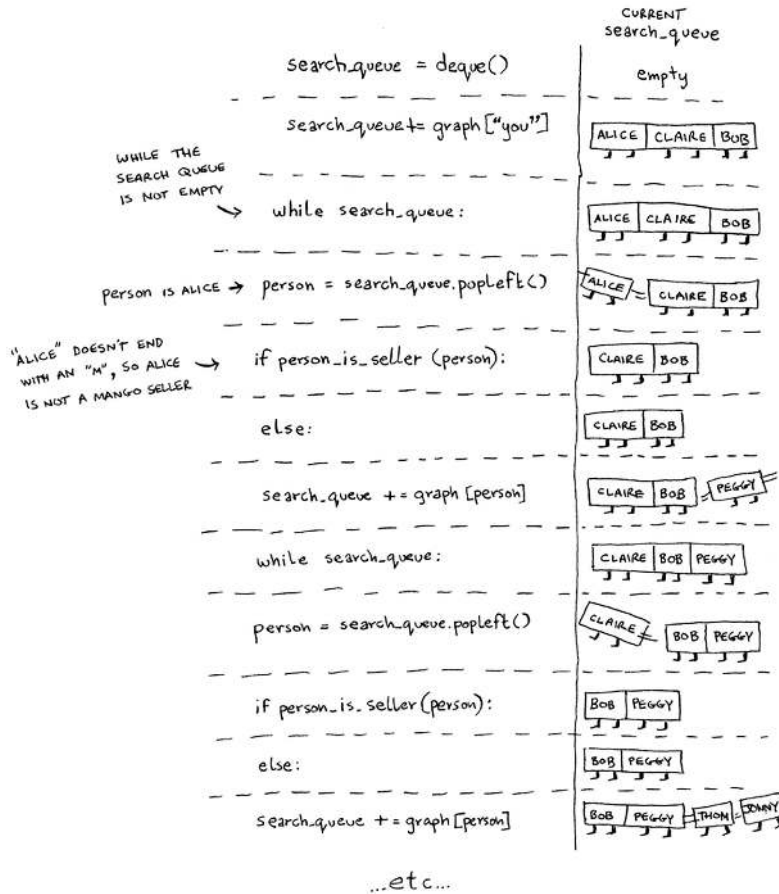 CURRENT
search_queue
search_queue = deque()
empty
search_queue += graph["you"]
ALICE CLAIRE BOB
WHILE THE
SEARCH QUEUE
IS NOT EMPTY
while search_queue:
ALICE CLAIRE BOB
person IS ALICE
person = search_queue.popleft()
ALICE CLAIRE BOB
"ALICE" DOESN'T END
WITH AN "M", SO ALICE
IS NOT A MANGO SELLER
if person_is_seller (person):
CLAIRE BOB
else:
CLAIRE BOB
search_queue += graph [person]
CLAIRE BOB PEGGY
while search_queue:
CLAIRE BOB PEGGY
person = search_queue.popleft()
CLAIRE BOB PEGGY
if person_is_seller (person):
BOB PEGGY
else:
BOB PEGGY
search_queue += graph [person]
BOB PEGGY THOM JONNY
...etc...